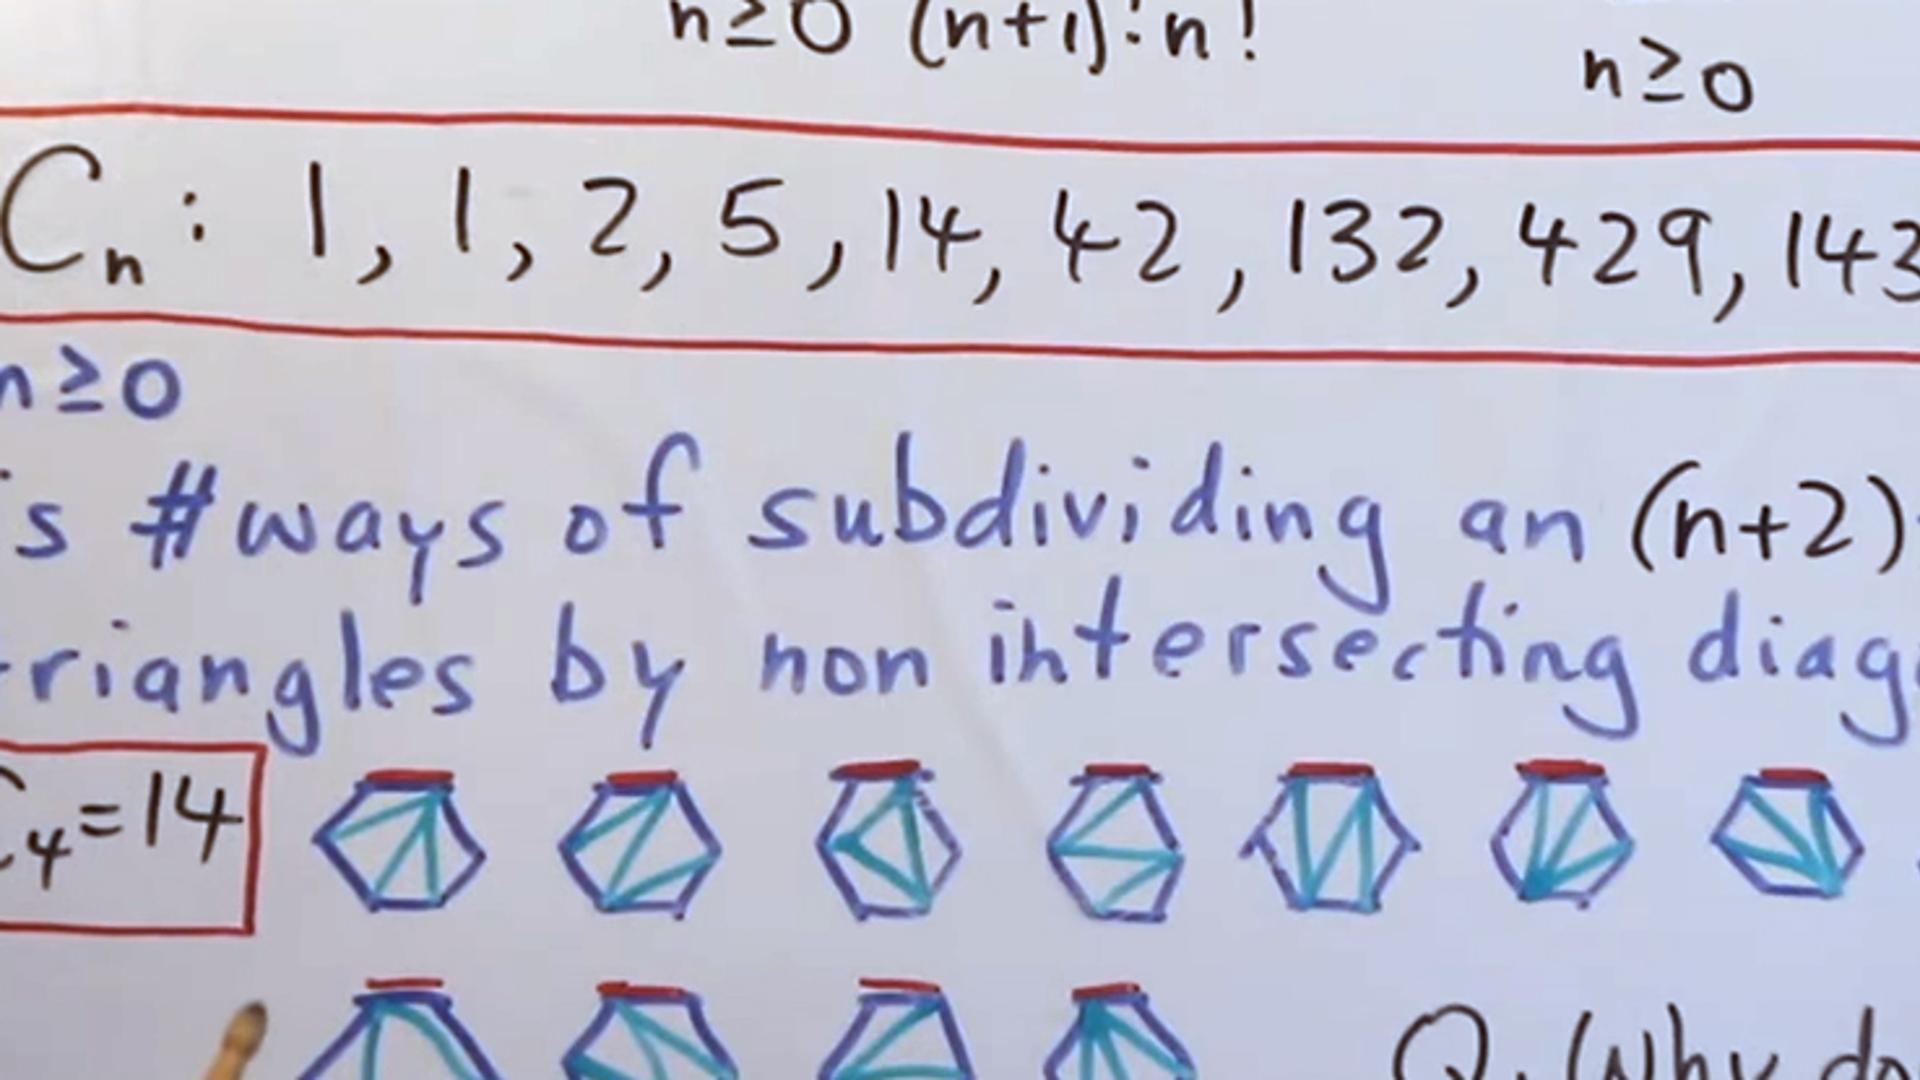 n≥0 (n+1)! n!
n≥0
Cn : 1, 1, 2, 5, 14, 42, 132, 429, 143
n≥0
is #ways of subdividing an (n+2)-
triangles by non intersecting diag
C4=14
Q. Why do